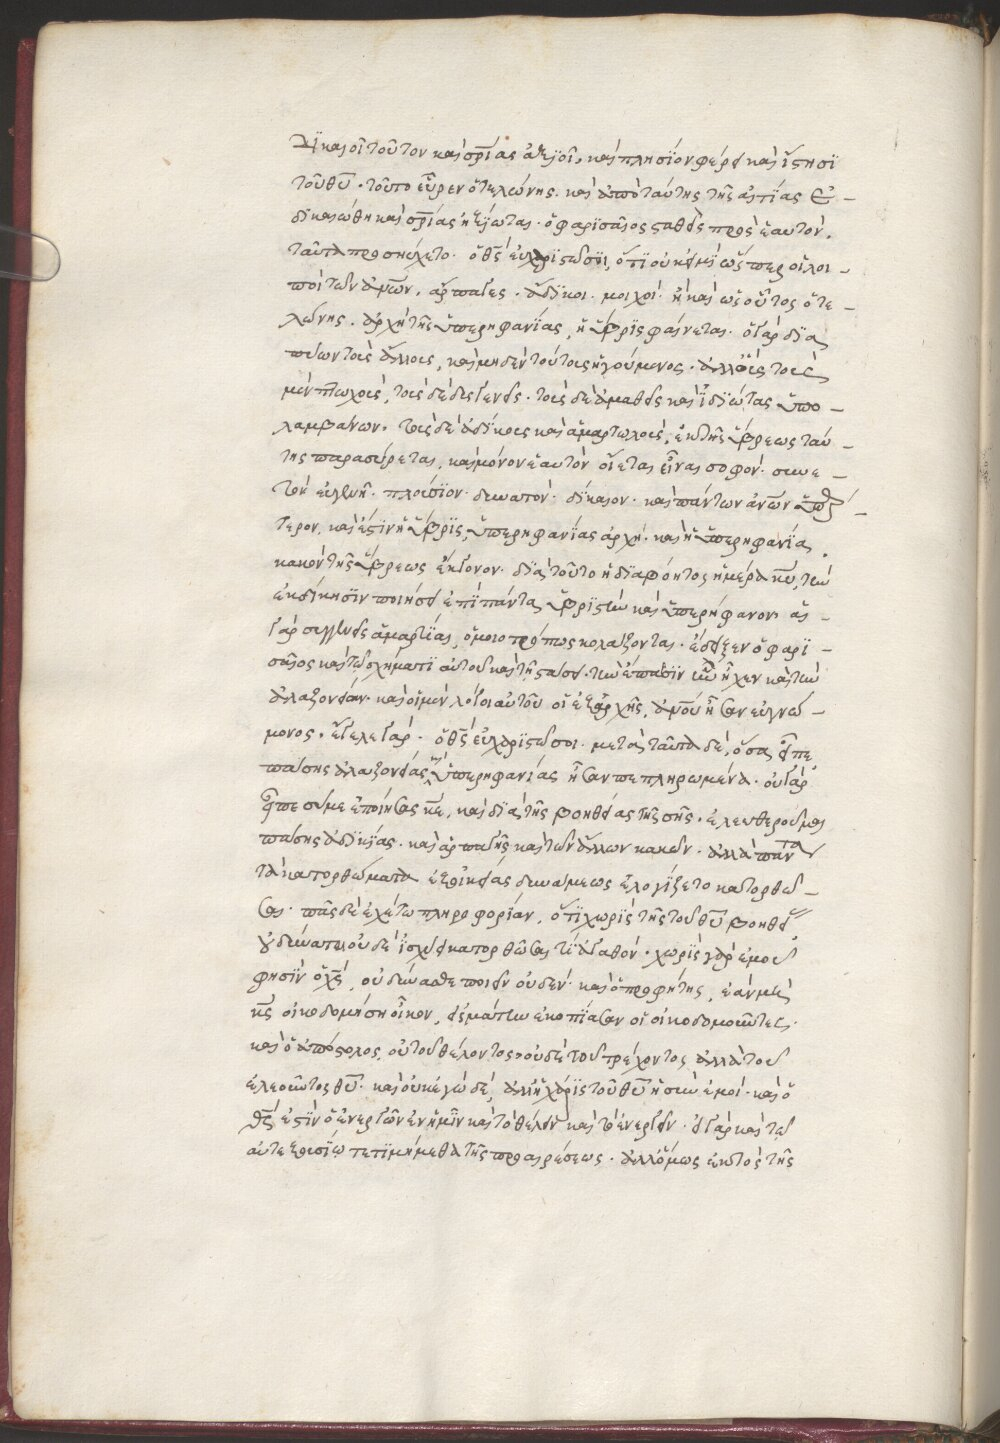 δικαιοῖ τοῦτον καὶ σρίας ἀξιοῖ, καὶ πλησίον φέρει καὶ ἵστησι
τοῦ θυ. τοῦτο εὗρεν ὁ τελώνης. καὶ ἀπὸ ταύτης τῆς αἰτίας ἐ-
δικαιώθη καὶ σρίας ἠξίωται. ὁ φαρισαῖος σταθεὶς πρὸς ἑαυτόν,
ταῦτα προσηύχετο. ὁ θς εὐχαριστῶ σοι, ὅτι οὐκ εἰμὶ ὥσπερ οἱ λοι-
ποὶ τῶν ἀνων, ἅρπαγες. ἄδικοι. μοιχοί. ἢ καὶ ὡς οὗτος ὁ τε-
λώνης. ἀρχὴ τῆς ὑπερηφανίας, ἡ ὕβρις φαίνεται. ὁ γὰρ δια
πτύων τοὺς ἄλλους, καὶ μηδὲν τούτους ἡγούμενος. ἀλλ' οἷς τοὺς
μὲν πτωχοὺς, τοὺς δὲ δυσγενεῖς. τοὺς δὲ ἀμαθεῖς καὶ ἰδιώτας ὑπο-
λαμβάνων. τοὺς δὲ ἀδίκους καὶ ἁμαρτωλοὺς, ἐκ τῆς ὕβρεως ταύ-
της παρασύρεται, καὶ μόνον ἑαυτὸν οἴεται εἶναι σοφόν. συνε-
τὸν εὐγενῆ. πλούσιον. δυνατόν. δίκαιον. καὶ πάντων ἀνων
τερον, καὶ ἔστιν ἡ ὕβρις, ὑπερηφανίας ἀρχή. καὶ ἡ ὑπερηφανία,
κακὸν τῆς ὕβρεως ἔκγονον. διὰ τοῦτο ἡ διαβόητος ἡμέρα κυ, τὴν
ἐκδίκησιν ποιήσει ἐπὶ πάντα ὑβριστὴν καὶ ὑπερήφανον. αἱ
γὰρ συγγενεῖς ἁμαρτίαι, ὁμοιοτρόπως κολάζονται. ἔδειξεν ὁ φαρι-
σαῖος καὶ τῷ σχήματι αὐτοῦ καὶ τῇ στάσει. τὴν ἔπαρσιν ἣν εἶχεν καὶ τὴν
ἀλαζονείαν. καὶ οἱ μὲν λόγοι αὐτοῦ οἱ ἐξαρχῆς, ἀνου ἦσαν εὐγνώ-
μονος. ἔλεγε γάρ. ὁ θς εὐχαριστῶ σοι. μετὰ ταῦτα δὲ, ὅσα εἶπε
πάσης ἀλαζονείας καὶ ὑπερηφανίας ἦσαν πεπληρωμένα. οὐ γὰρ
εἶπε σύ με ἐποίησας κε, καὶ διὰ τῆς βοηθείας τῆς σῆς. ἐλευθεροῦμαι
πάσης ἀδικίας. καὶ ἁρπαγῆς καὶ τῶν ἄλλων κακῶν. ἀλλὰ πάντα
τὰ κατορθώματα ἐξ οἰκείας δυνάμεως ἐλογίζετο κατορθῶ-
σαι. πᾶς δὲ ἐχέτω πληροφορίαν, ὅτι χωρὶς τῆς τοῦ θυ βοηθεί
οὐ δύναται οὐδὲ ἰσχύει κατορθῶσαι τὶ ἀγαθόν. χωρὶς γὰρ ἐμοῦ
φησὶν ὁ χς, οὐ δύνασθε ποιεῖν οὐδέν. καὶ ὁ προφήτης, ἐὰν μὴ
κς οἰκοδομήσῃ οἶκον, εἰς μάτην ἐκοπίασαν οἱ οἰκοδομοῦντες.
καὶ ὁ ἀπόστολος, οὐ τοῦ θέλοντος, οὐδὲ τοῦ τρέχοντος ἀλλὰ τοῦ
ἐλεοῦντος θυ. καὶ οὐκ ἐγὼ δέ, ἀλλ' ἡ χάρις τοῦ θυ ἡ σὺν ἐμοί. καὶ ὁ
θς ἐστὶν ὁ ἐνεργῶν ἐν ἡμῖν καὶ τὸ θέλειν καὶ τὸ ἐνεργεῖν. εἰ γὰρ καὶ τῷ
αὐτεξουσίῳ τετιμήμεθα τῆς προαιρέσεως. ἀλλ' ὅμως ἐκτὸς τῆς